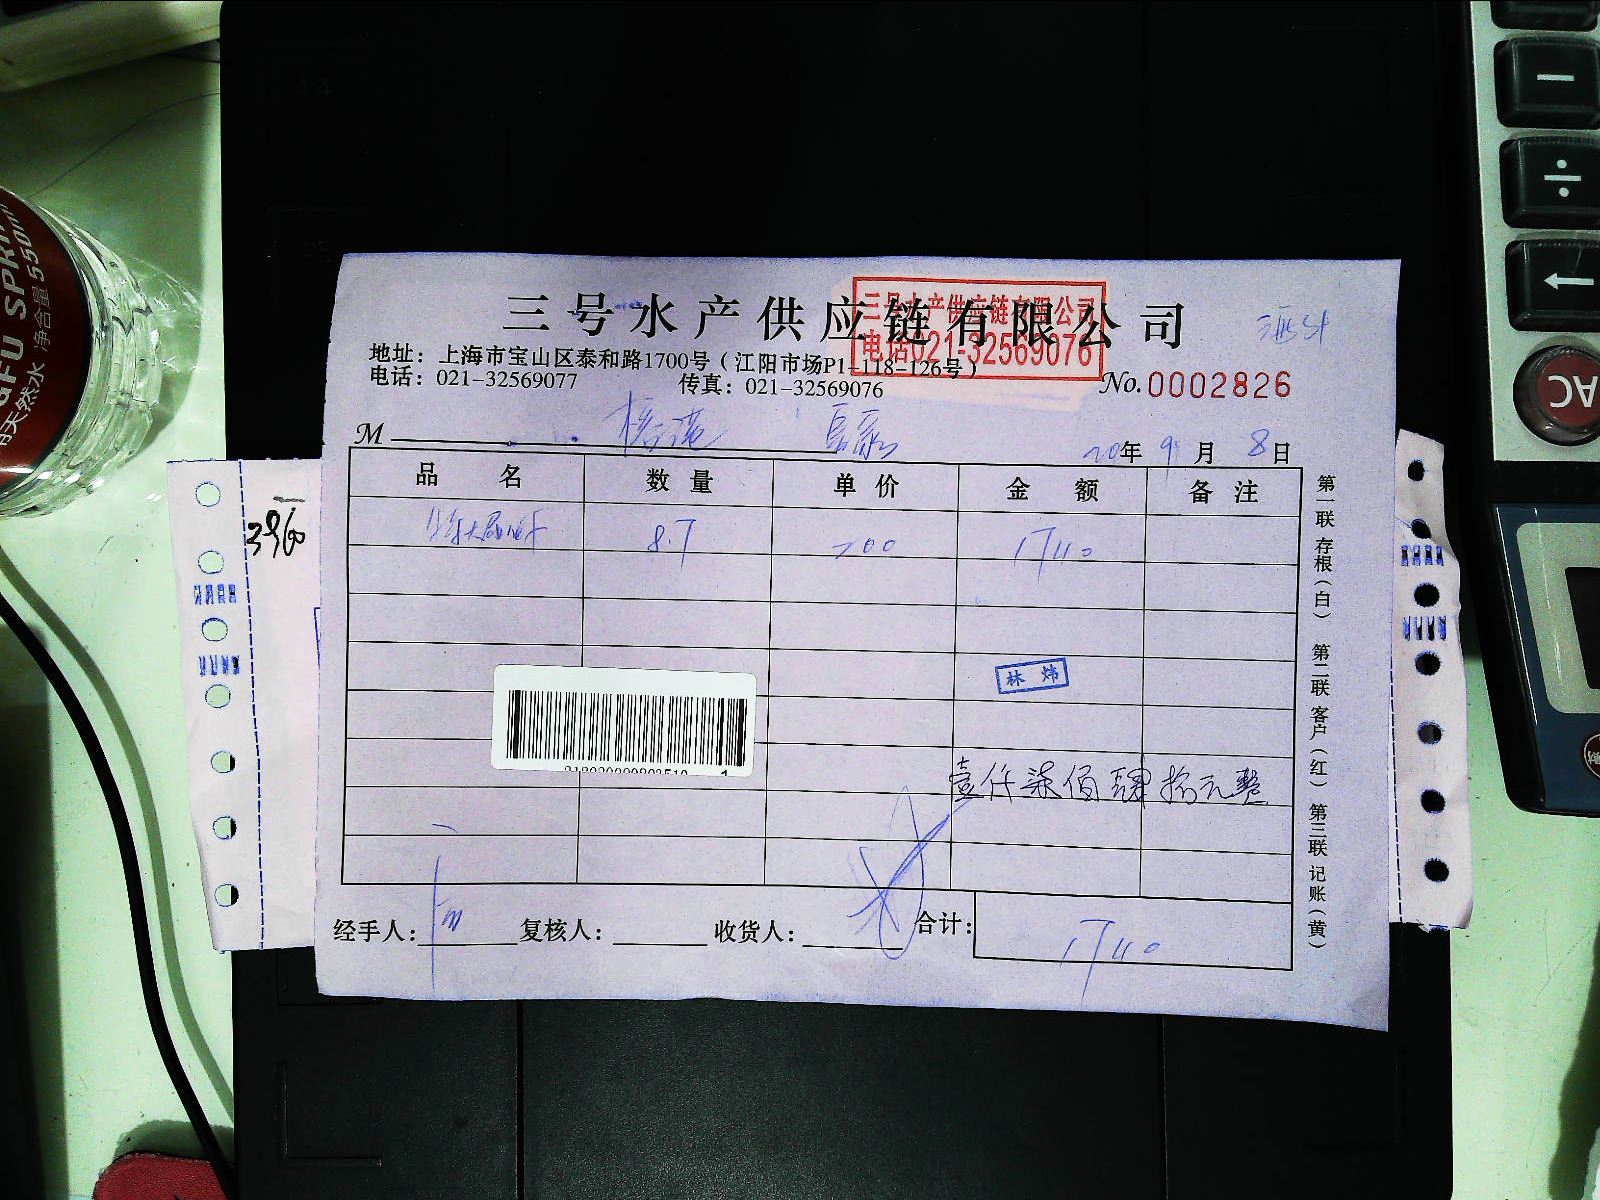 三号水产供应链有限公司
三号水产供应链有限公司
电话021-32569076
地址：上海市宝山区泰和路1700号（江阳市场P1-118-126号）
电话：021-32569077 传真：021-32569076
No.0002826
M
20年 9月 8日
品 名 数 量 单 价 金 额 备 注
8.7 200 1740
林 炜
壹仟柒佰肆拾元整
经手人： 复核人： 收货人： 合计： 1740
第一联 存根（白） 第二联 客户（红） 第三联 记账（黄）
3960
净含量 550ml
天然水
AC